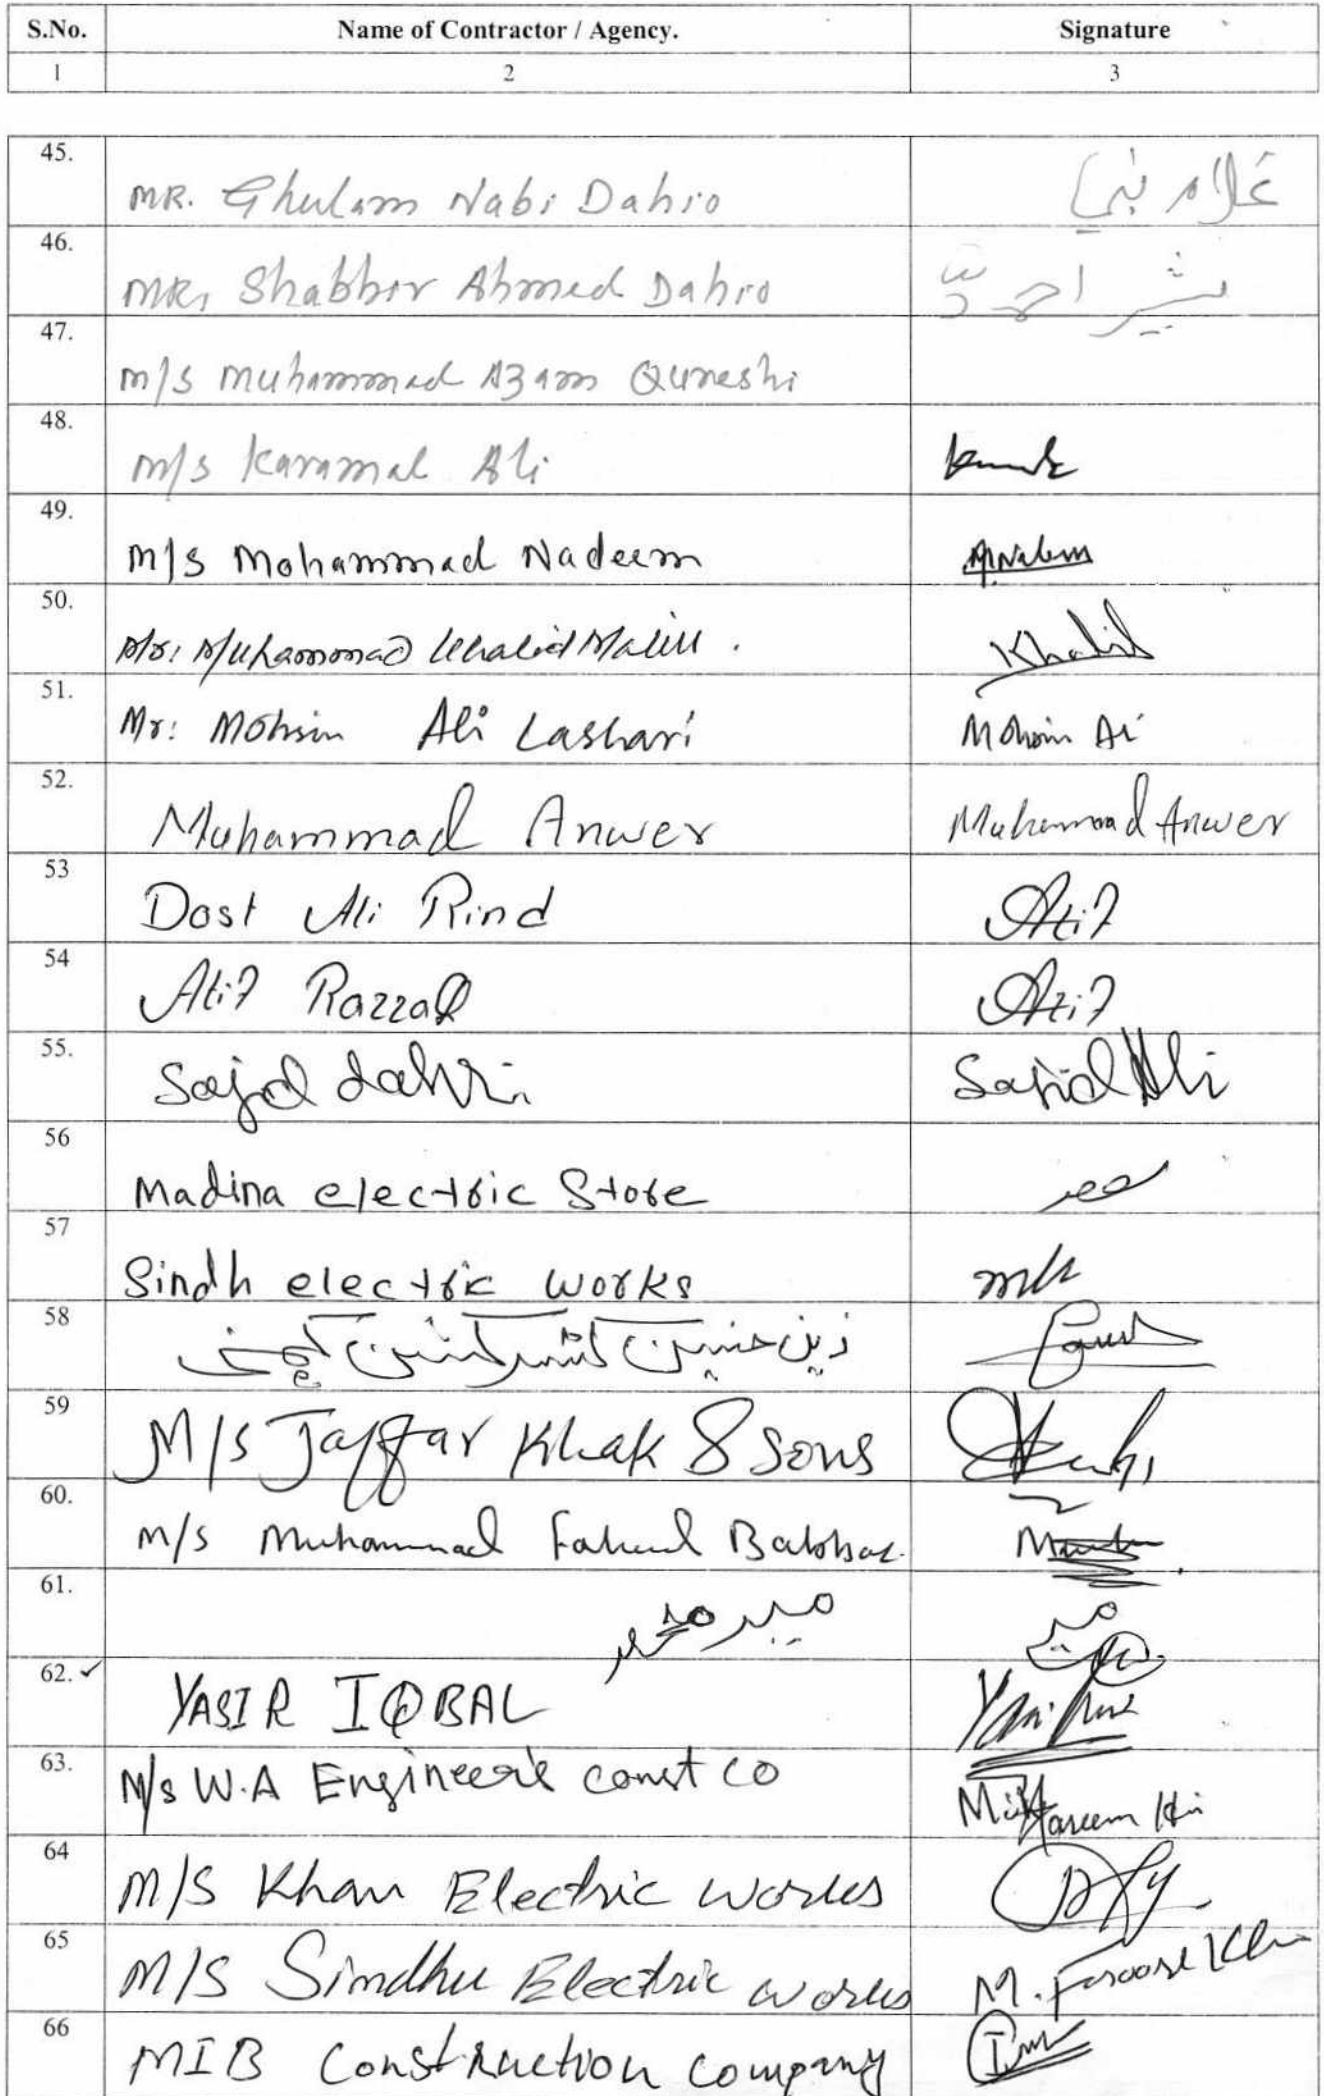 S.No. Name of Contractor / Agency. Signature
1 2 3
45. MR. Ghulam Nabi Dahio غلام نبي
46. MR, Shabbir Ahmed Dahio
47. m/s Muhammad Azam Qureshi
48. m/s Karamal Ali
49. M/S Mohammad Nadeem M.Nadeem
50. Mr: Muhammad Khalid Malik. Khalid
51. Mr: Mohsin Ali Lashari Mohsin Ali
52. Muhammad Anwer Muhammad Anwer
53 Dost Ali Rind Atif
54 Atif Razzaq Atif
55. Sajid dahri Sajid Ali
56 Madina electric Store
57 Sindh electric works
58 زين حسين
59 M/s Jaffar Khak & Sons
60. M/s Muhammad Fahad
61. مير محمد
62. ✓ YASIR IQBAL
63. M/s W.A Engineers const co
64 M/S Khan Electric Works
65 M/S Sindhu Electric works M. Farooq Khan
66 MIB Construction Company